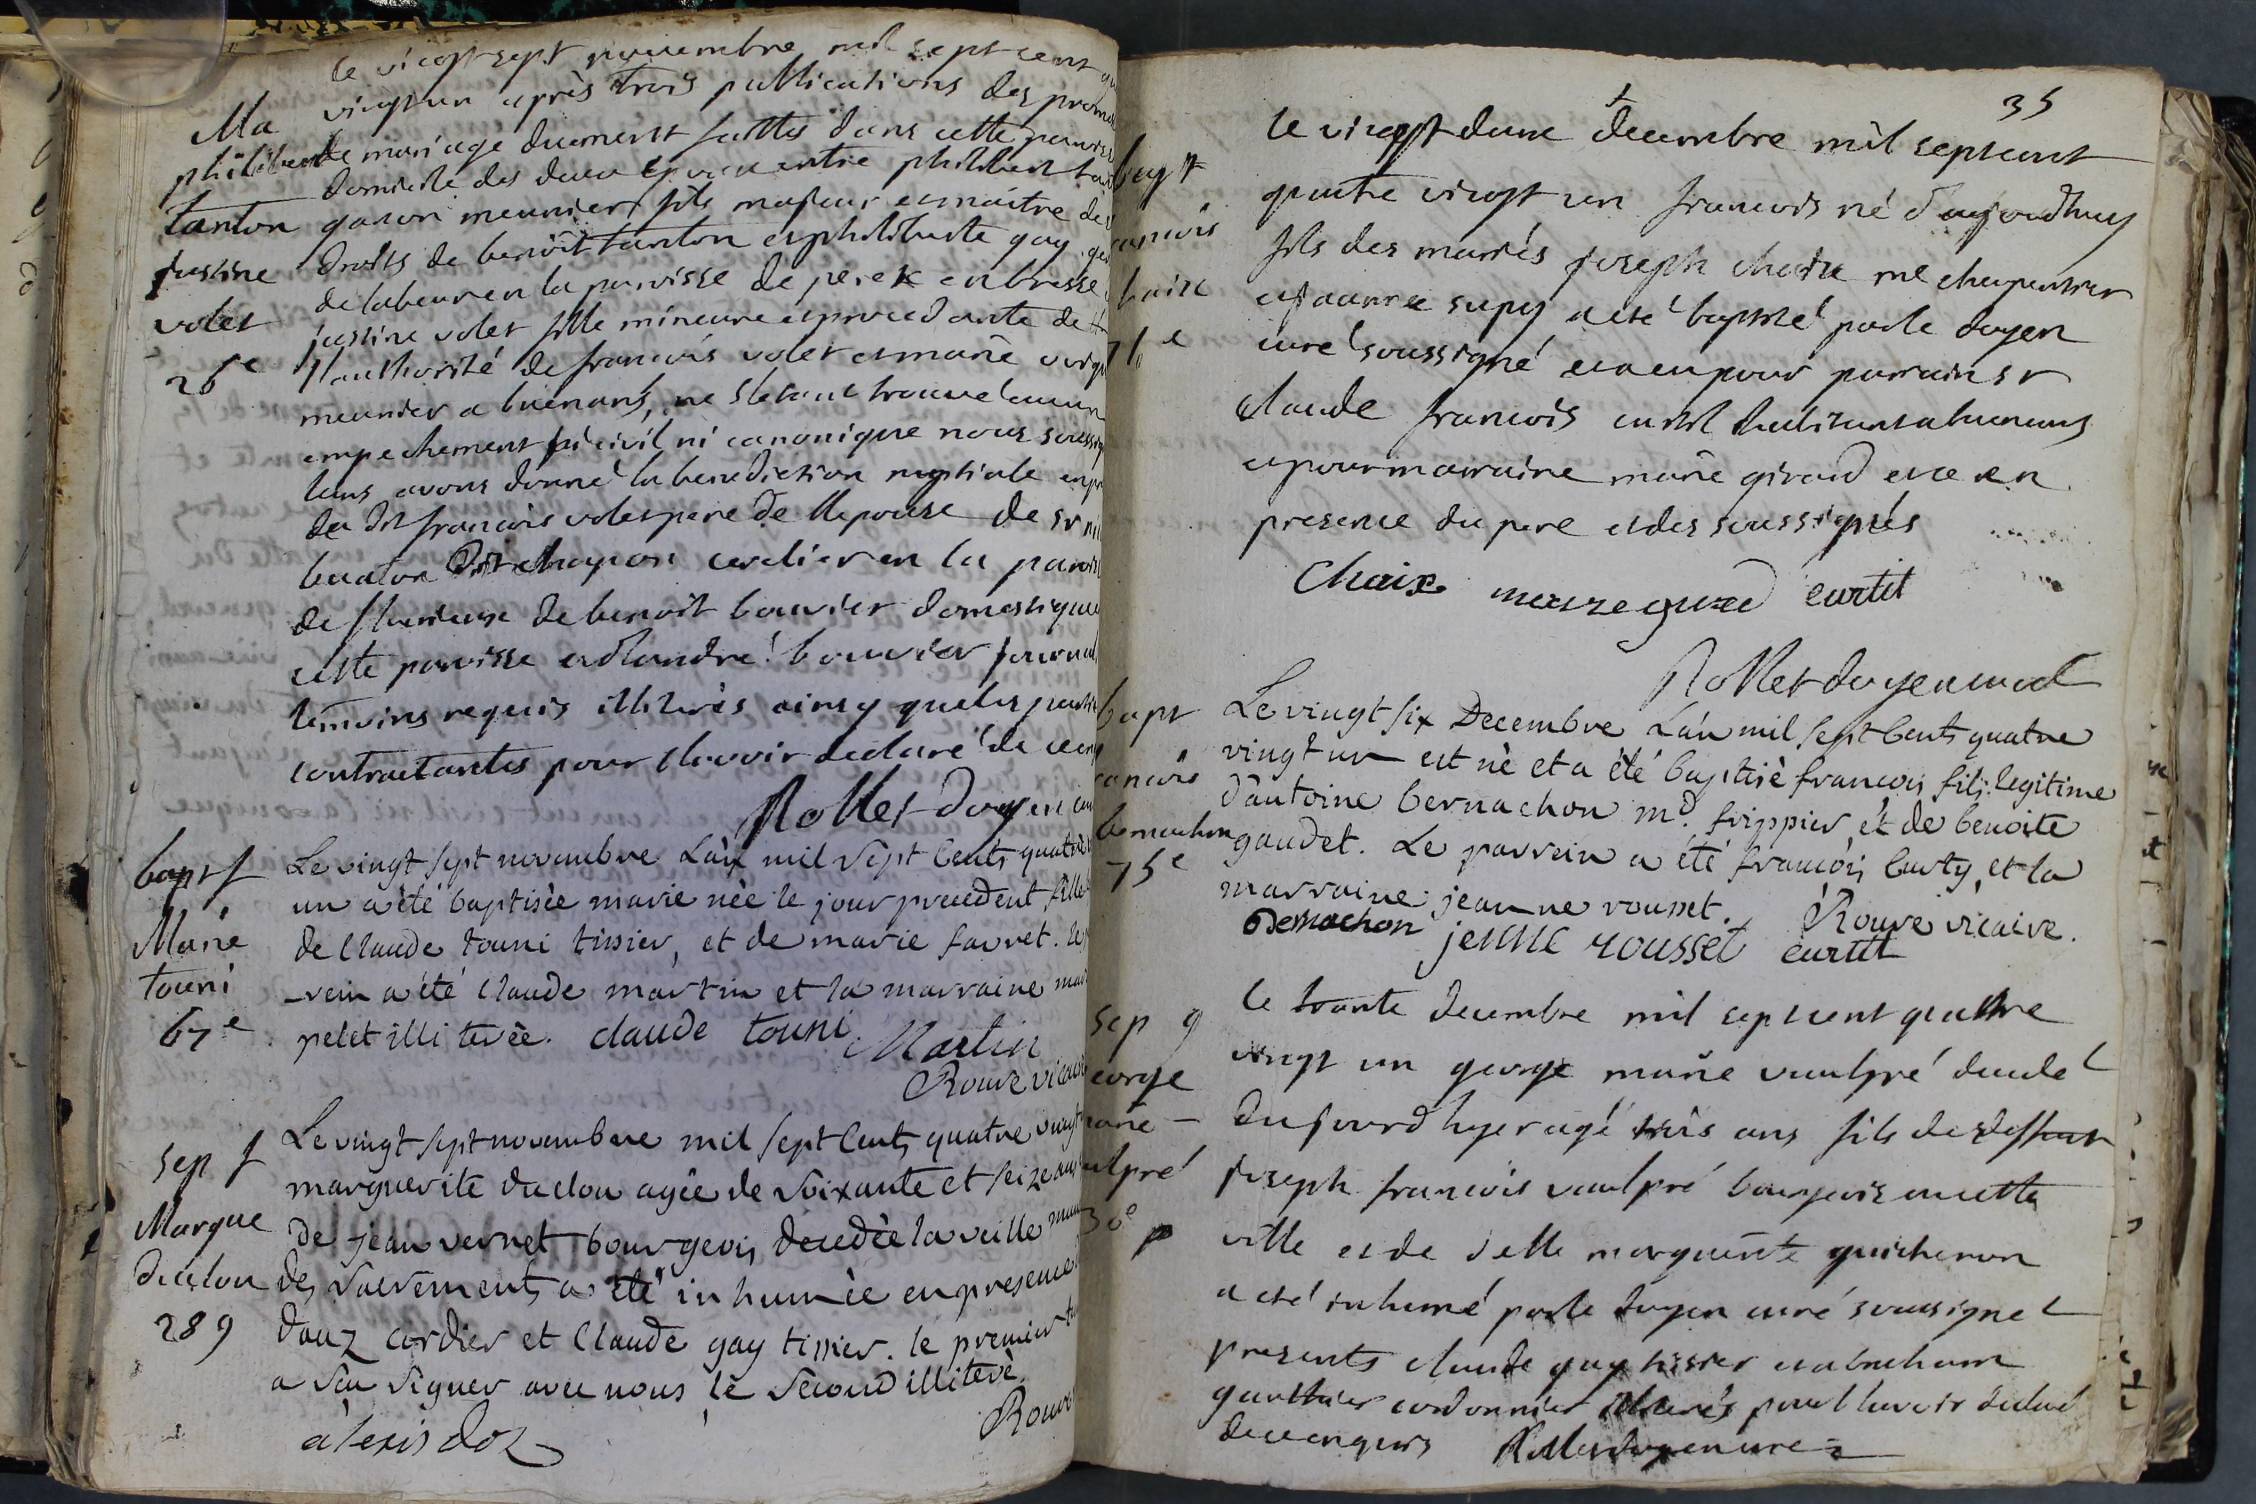 le vingt sept novembre mil sept cent
vingt un après trois publications des prome
de mariage duement faittes dans cette paroisse
domicile des deux epoux entre philibert tant
garcon meunier fils majeur et maitre des
droits de benoît tanton et philiberte gay
de labeur en la paroisse de perex en bresse
justine volet fille mineure et procedante de
l'authorité de francois volet et marie
meunier a , ne s'etant trouvé aucun
empechement ni civil ni canonique nous soussig
leurs avons donné la benediction nuptiale en pr
du dit francois volet pere de l'epouse de sr
buatton dit chapon cordier en la parois
de fleurieux de benoit bouvier domestique
cette paroisse et andré bouvier journal
temoins requis illiterés ainsy que les parti
contractantes pour l'avoir declaré de ce enq
Rollet doyen cu
Ma
philiberte
tanton
justine
volet
26e
Le vingt sept novembre L'an mil sept Cents quatre
un a été baptisèe marie nèe le jour precedent fille
de Claude touni tissier, et de marie favret. le
-rein a été Claude martin et la marraine mar
pelet illiterèe. claude touni Martin
Rouve vicaire
bapt f
Marie
touni
67e
Le vingt sept novembre mil sept Cents quatre vingt
marguerite duclou agèe de soixante et seize ans
de jean vernet bourgeois, decedèe la veille mun
des sacrements, a été inhumèe en presence
douz cordier et Claude gay tissier. le premier
a seu signer avec nous le second illiterè.
alexis doz Rouve
sep f
Margue
Duclou
289
35
le vingt deux decembre mil sept cent
quatre vingt un francois né d'aujourdhuy
fils des mariés joseph chaix me charpentier
et jeanne supy a eté baptisé par le doyen
curé soussigné et a eu pour parrain sr
claude francois curtil habitant a
et pour marraine marie girard et ce en
presence du pere et des soussignés
Chaix marie girard curtil
Rollet doyen curé
bapt
ancois
haix
74e
Le vingt six Decembre L'an mil sept Cents quatre
vingt un est nè et a été baptisè francois fils legitime
d'antoine bernachon md. frippier et de benoite
gaudet. Le parrein a été francois Curty, et la
marraine jeanne rousset. Rouve vicaire.
Bernachon jenne rousset curtil
bapt
ancois
bernachon
75e
le trante decembre mil sept cent quattre
vingt un george marie vaulpré decedé
du jourd'hyer agé trois ans fils de deffunt
joseph francois vaulpré bourgeois en cette
ville et de delle marguerite guichenon
a eté inhumé par le doyen curé soussigné
presents claude gay tissier et abraham
gautthier cordonnier illiterés pour l'avoir declaré
de ce enquis Rollet doyen curé
sep g
eorge
marie
ulpré
30e